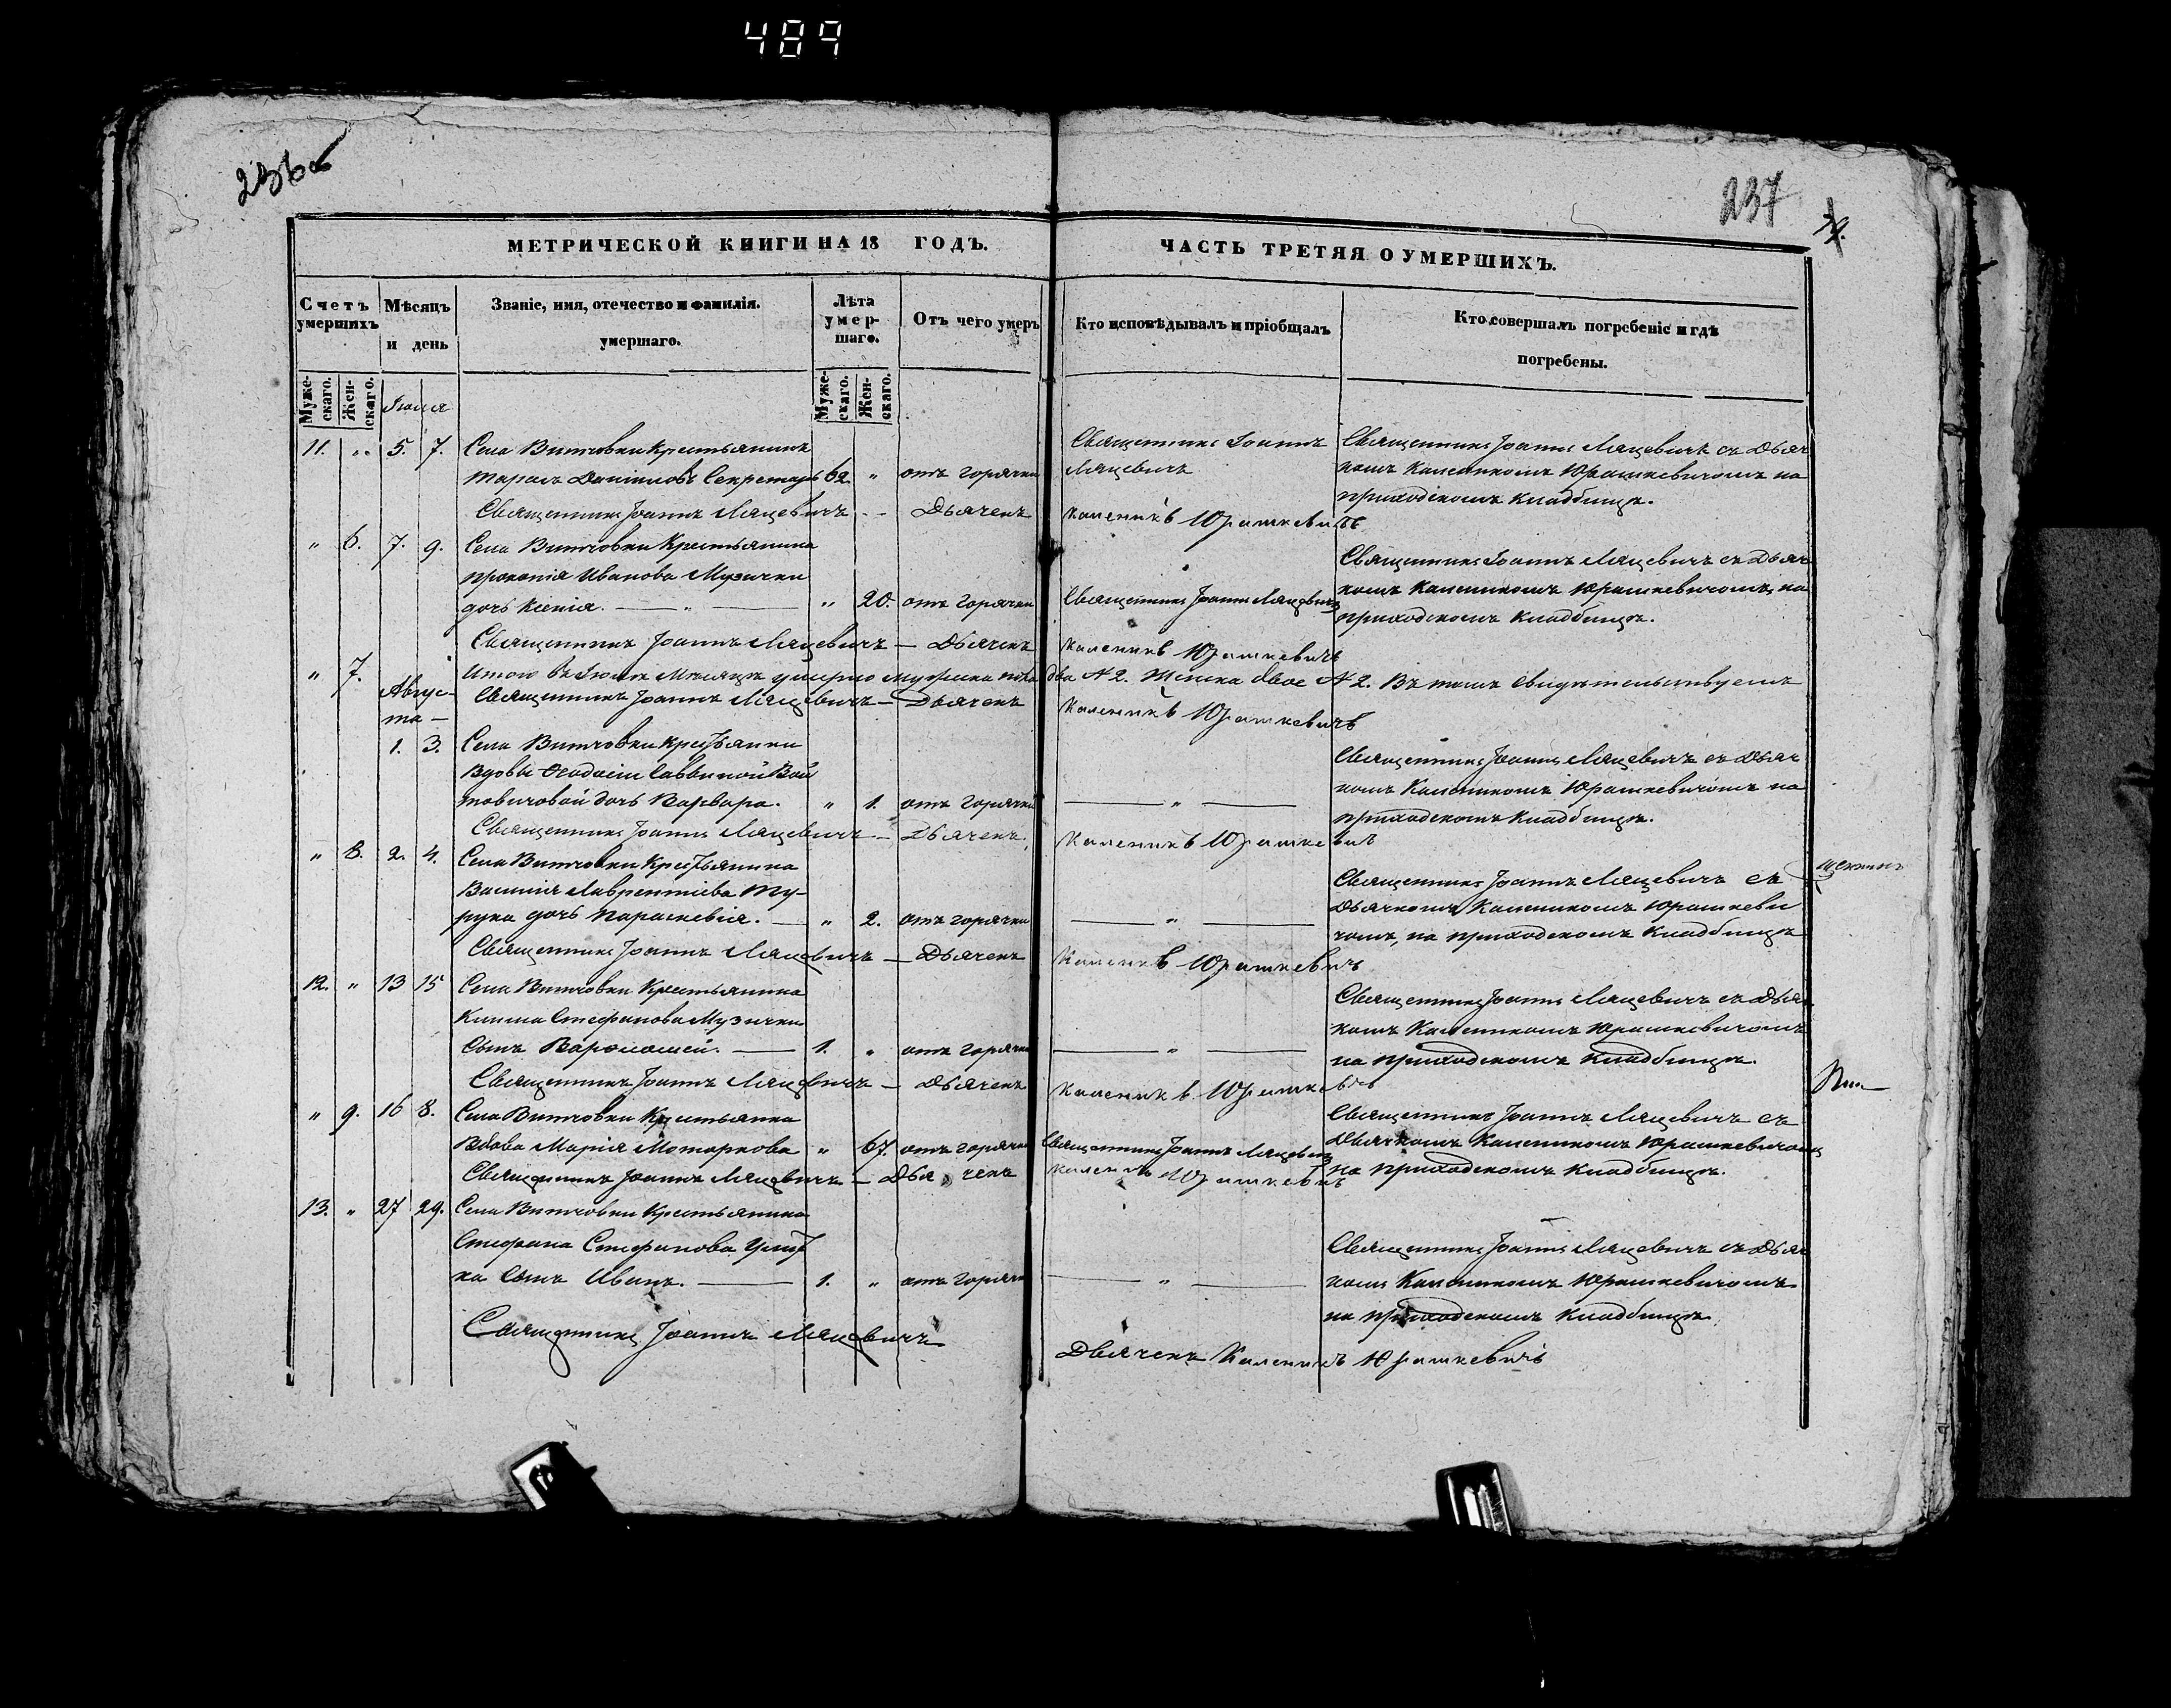 489
236об
237
МЕТРИЧЕСКОЙ КНИГИ НА 18 ГОДЪ.
ЧАСТЬ ТРЕТЯЯ О УМЕРШИХЪ.
Счетъ умершихъ
Мѣсяцъ и день
Званіе, имя, отечество и фамилія. умершаго.
Лѣта умер-шаго.
Отъ чего умеръ
Кто исповѣдывалъ и пріобщалъ
Кто совершалъ погребеніе и гдѣ погребены.
Муже-скаго.
Жен-скаго.
Муже-скаго.
Жен-скаго.
11. " 5. 7. Села Витчовки Крестьянинъ
Тарасъ Даніиловъ Секретарь 62. " отъ горячки
Священникъ Іоаннъ Ляцевичъ
Священникъ Іоаннъ Ляцевичъ съ Дьяч
комъ Каленикомъ Юрашкевичомъ на
приходскомъ кладбищѣ.
Священникъ Іоаннъ Ляцевичъ — Дьячекъ Каленикъ Юрашкевичъ
" 6. 7. 9. Села Витчовки Крестьянина
Прокопія Иванова Музички
дочь Ксенія. — " — " 20. отъ горячки
Священникъ Іоаннъ Ляцевичъ
Священникъ Іоаннъ Ляцевичъ съ Дьяч
комъ Каленикомъ Юрашкевичомъ, на
приходскомъ кладбищѣ.
Священникъ Іоаннъ Ляцевичъ — Дьячекъ Каленикъ Юрашкевичъ
" 7.
Августа —
Священникъ Іоаннъ Ляцевичъ — Дьячекъ Каленикъ Юрашкевичъ
1. 3. Села Витчовки Крестьянки
Вдовы Феодосіи Саввиной Вой
товичовой дочь Варвара. " 1. отъ горячки
— " —
Священникъ Іоаннъ Ляцевичъ съ Дьяч
комъ Каленикомъ Юрашкевичомъ на
приходскомъ кладбищѣ.
Священникъ Іоаннъ Ляцевичъ — Дьячекъ Каленикъ Юрашкевичъ
" 8. 2. 4. Села Витчовки Крестьянина
Василія Лаврентіева Ту-
рука дочь Параскевія. — " 2. отъ горячки
— " —
Священникъ Іоаннъ Ляцевичъ съ
Дьячкомъ Каленикомъ Юрашкеви
чомъ, на приходскомъ кладбищѣ
Священникъ Іоаннъ Ляцевичъ — Дьячекъ Каленикъ Юрашкевичъ
12. " 13 15 Села Витчовки Крестьянина
Клима Стефанова Музички
сынъ Варфоломей. — 1. " отъ горячки
— " —
Священникъ Іоаннъ Ляцевичъ съ Дьяч
комъ Каленикомъ Юрашкевичомъ
на приходскомъ кладбищѣ.
Священникъ Іоаннъ Ляцевичъ — Дьячекъ Каленикъ Юрашкевичъ
" 9. 16 8. Села Витчовки Крестьянка
Вдова Марія Моторкова " 67. отъ горячки
Священникъ Іоаннъ Ляцевичъ
Священникъ Іоаннъ Ляцевичъ съ
Дьячкомъ Каленикомъ Юрашкевичомъ
на приходскомъ кладбищѣ.
Священникъ Іоаннъ Ляцевичъ — Дьячекъ Каленикъ Юрашкевичъ
13. " 27 29. Села Витчовки Крестьянина
Стефана Стефанова
ка сынъ Иванъ. — 1. " отъ горячки
— " —
Священникъ Іоаннъ Ляцевичъ съ Дьяч
комъ Каленикомъ Юрашкевичомъ
на приходскомъ кладбищѣ.
Священникъ Іоаннъ Ляцевичъ
Дьячекъ Каленикъ Юрашкевичъ